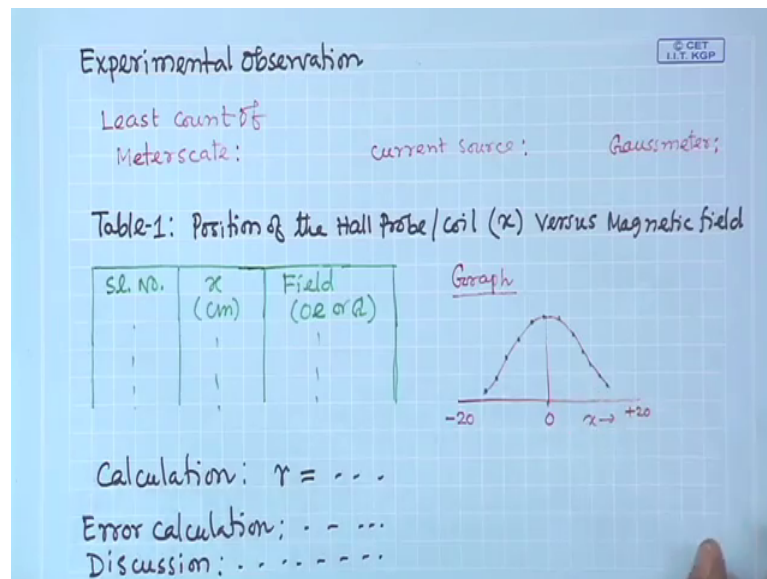 Experimental Observation
© CET
I.I.T. KGP
Least Count Of
Meterscale:
Current Source:
Gaussmeter:
Table-1: Position of the Hall Probe/coil (x) Versus Magnetic field
Sl. No.
x
(cm)
Field
(Oe or G)
Graph
-20
0
x→
+20
Calculation: r = - - -
Error calculation: . - ...
Discussion: . . . . - - - .